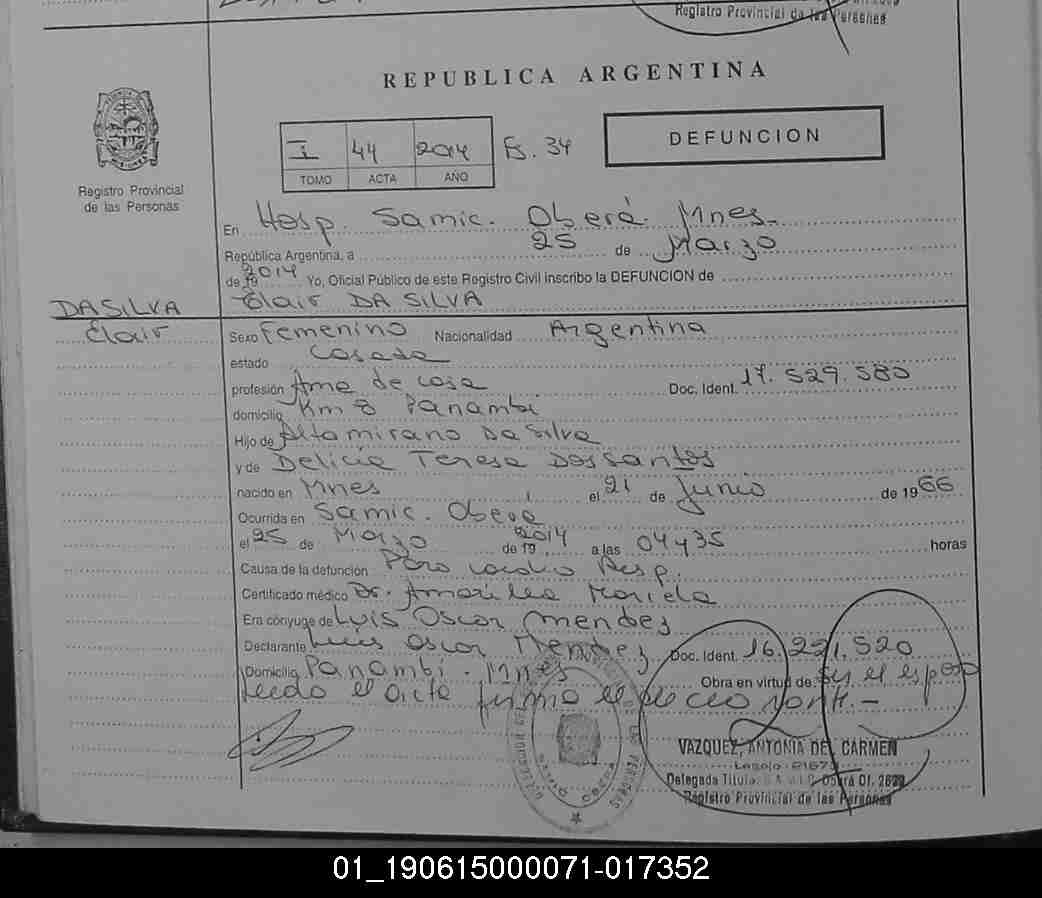 Registro Provincial de las Personas
REPUBLICA ARGENTINA
I 44 2014 Fs. 34
TOMO ACTA AÑO
DEFUNCION
Registro Provincial
de las Personas
En Hosp. Samic. Oberá. Mnes.
República Argentina, a 25 de Marzo
de 19 2014 Yo, Oficial Público de este Registro Civil inscribo la DEFUNCION de
DA SILVA Elair DA SILVA
Elair Sexo Femenino Nacionalidad Argentina
estado Casada
profesión Ama de casa Doc. Ident. 17.529.580
domicilio Km 8 Panambi
Hijo de Altamirano Da Silva
y de Delicia Teresa Dos Santos
nacido en Mnes el 21 de Junio de 1966
Ocurrida en Samic. Oberá
el 25 de Marzo de 19 2014 a las 04 y 35 horas
Causa de la defunción Paro Cardio Resp.
Certificado médico Dr. Mariela
Era cónyuge de Luis Oscar Mendes
Declarante Luis Oscar Mendez Doc. Ident. 16.221.520
Domicilio Panambi. Mnes Obra en virtud de ser el esposo
Leido el acta firma el
VAZQUEZ, ANTONIA DEL CARMEN
Delegada Titular
Registro Provincial de las Personas
01_190615000071-017352